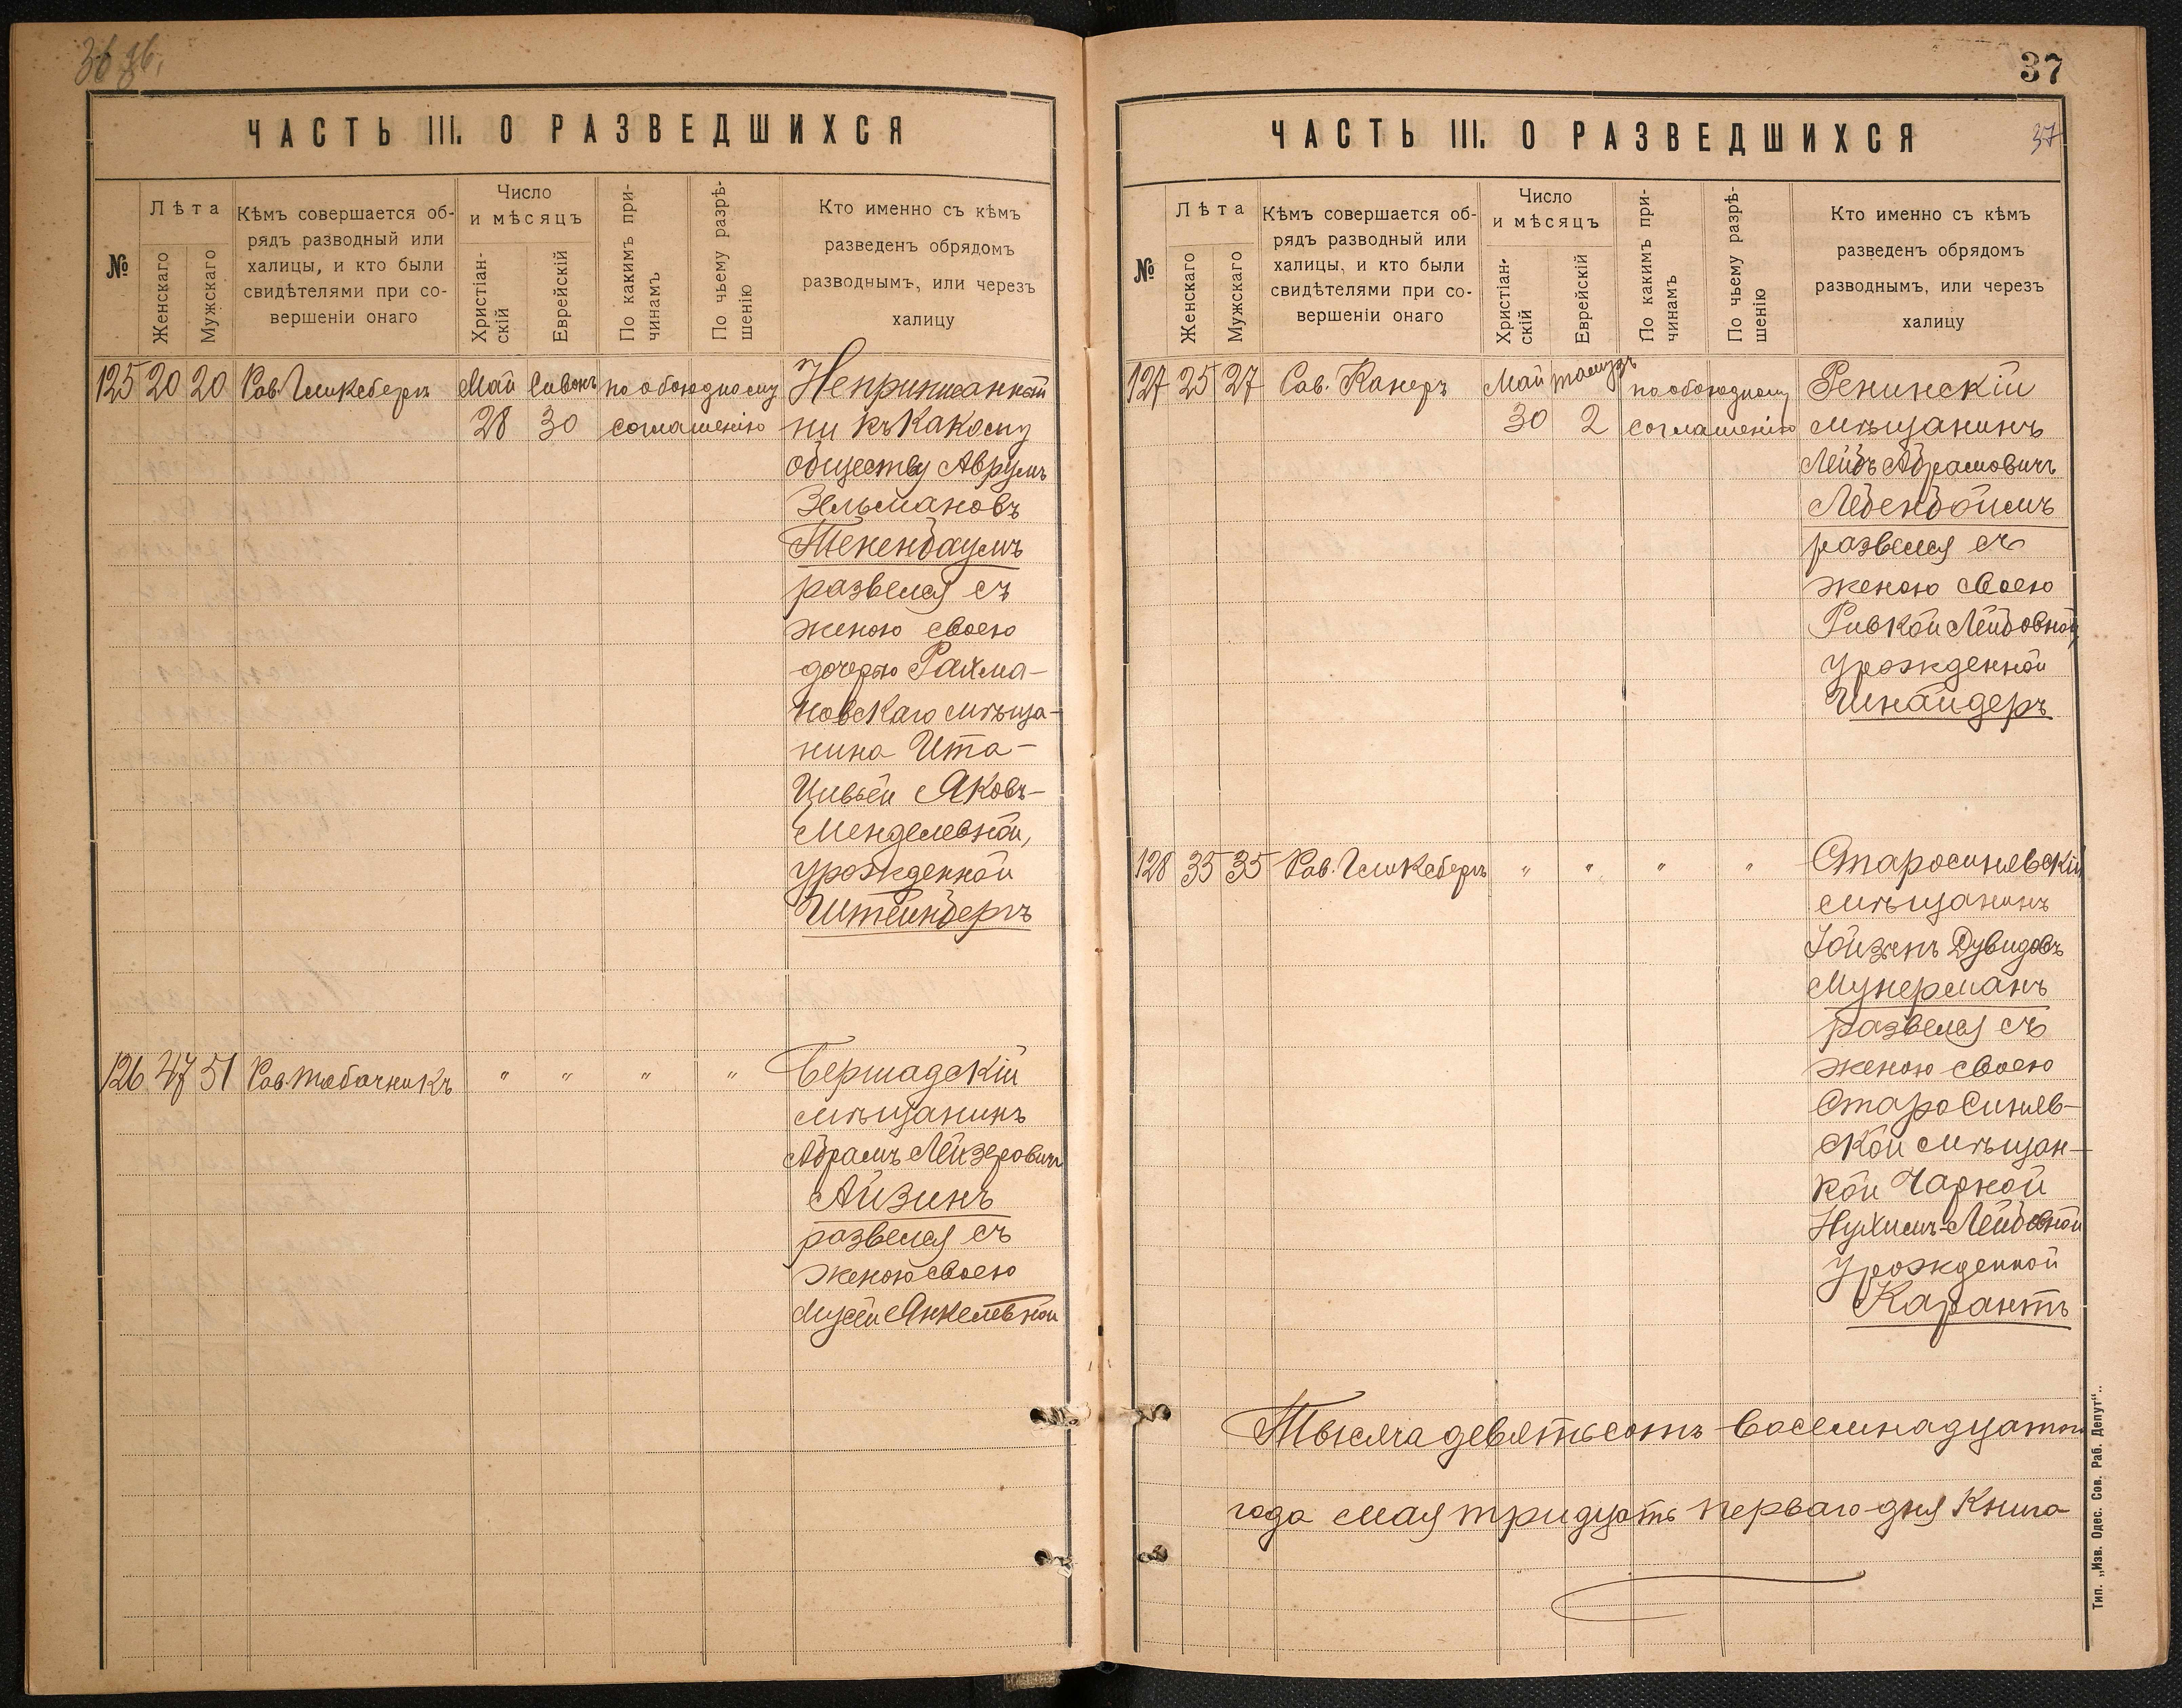 36 36.
ЧАСТЬ III. О РАЗВЕДШИХСЯ
№
Лѣта
Женскаго
Мужскаго
Кѣмъ совершается об-
рядъ разводный или
халицы, и кто были
свидѣтелями при со-
вершеніи онаго
Число
и мѣсяцъ
Христіан-
скій
Еврейскій
По какимъ при-
чинамъ
По чьему разрѣ-
шенію
Кто именно съ кѣмъ
разведенъ обрядомъ
разводнымъ, или черезъ
халицу
125 20 20 Рав. Гликсбергъ Май Сивонъ по обоюдному Неприписанный
28 30 соглашенію ни къ какому
обществу Аврумъ
Зельмановъ
Текенбаумъ
развелся съ
женою своею
дочерью Рахма-
новскаго мѣща-
нина Ита-
Цивьей Яковъ-
Менделевной,
урожденной
Штейнбергъ
126 47 51 Рав. Табачникъ " " " " Бершадскій
мѣщанинъ
Абрамъ Лейзеровичъ
Айзинъ
развелся съ
женою своею
Мусей Янкелевной
37
ЧАСТЬ III. О РАЗВЕДШИХСЯ
37
№
Лѣта
Женскаго
Мужскаго
Кѣмъ совершается об-
рядъ разводный или
халицы, и кто были
свидѣтелями при со-
вершеніи онаго
Число
и мѣсяцъ
Христіан-
скій
Еврейскій
По какимъ при-
чинамъ
По чьему разрѣ-
шенію
Кто именно съ кѣмъ
разведенъ обрядомъ
разводнымъ, или черезъ
халицу
127 25 27 Рав. Канеръ Май тамузъ по обоюдному Ренинскій
30 2 соглашенію мѣщанинъ
Лейбъ Абрамовичъ
Лебенбоймъ
развелся съ
женою своею
Ривкой Лейбовной
урожденной
Шнайдеръ
128 35 35 Рав. Гликсбергъ " " " " Старосинявскій
мѣщанинъ
Іойзепъ Дувидовъ
Мунерманъ
развелся съ
женою своею
Старосиняв-
ской мѣщан-
кой Чарной
Нухимъ-Лейбовной
урожденной
Карантъ
Тысяча девятьсотъ восемнадцатаго
года мая тридцать перваго дня книга
Тип. „Изв. Одес. Сов. Раб. Депут“..